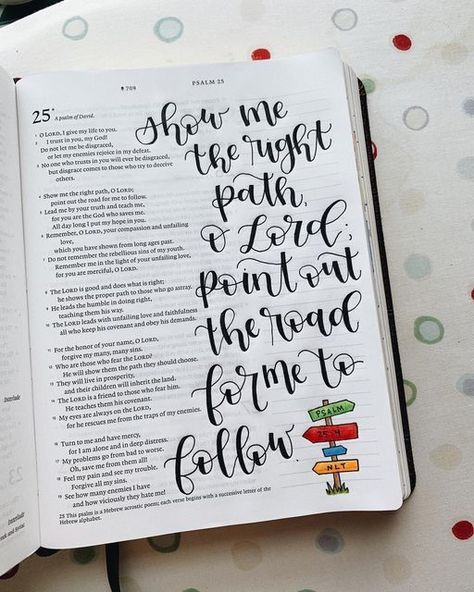 709
PSALM 25
25
A psalm of David.
1 O LORD, I give my life to you.
2 I trust in you, my God!
Do not let me be disgraced,
or let my enemies rejoice in my defeat.
3 No one who trusts in you will ever be disgraced,
but disgrace comes to those who try to deceive
others.
4 Show me the right path, O LORD;
point out the road for me to follow.
5 Lead me by your truth and teach me,
for you are the God who saves me.
All day long I put my hope in you.
6 Remember, O LORD, your compassion and unfailing
love,
which you have shown from long ages past.
7 Do not remember the rebellious sins of my youth.
Remember me in the light of your unfailing love,
for you are merciful, O LORD.
8 The LORD is good and does what is right;
he shows the proper path to those who go astray.
9 He leads the humble in doing right,
teaching them his way.
10 The LORD leads with unfailing love and faithfulness
all who keep his covenant and obey his demands.
11 For the honor of your name, O LORD,
forgive my many, many sins.
12 Who are those who fear the LORD?
He will show them the path they should choose.
13 They will live in prosperity,
and their children will inherit the land.
14 The LORD is a friend to those who fear him.
He teaches them his covenant.
15 My eyes are always on the LORD,
for he rescues me from the traps of my enemies.
16 Turn to me and have mercy,
for I am alone and in deep distress.
17 My problems go from bad to worse.
Oh, save me from them all!
18 Feel my pain and see my trouble.
Forgive all my sins.
19 See how many enemies I have
and how viciously they hate me!
25 This psalm is a Hebrew acrostic poem; each verse begins with a successive letter of the
Hebrew alphabet.
Show me
the right
path,
O Lord;
point out
the road
for me to
follow.
PSALM
25:4
NLT
Interlude
23
Interlude